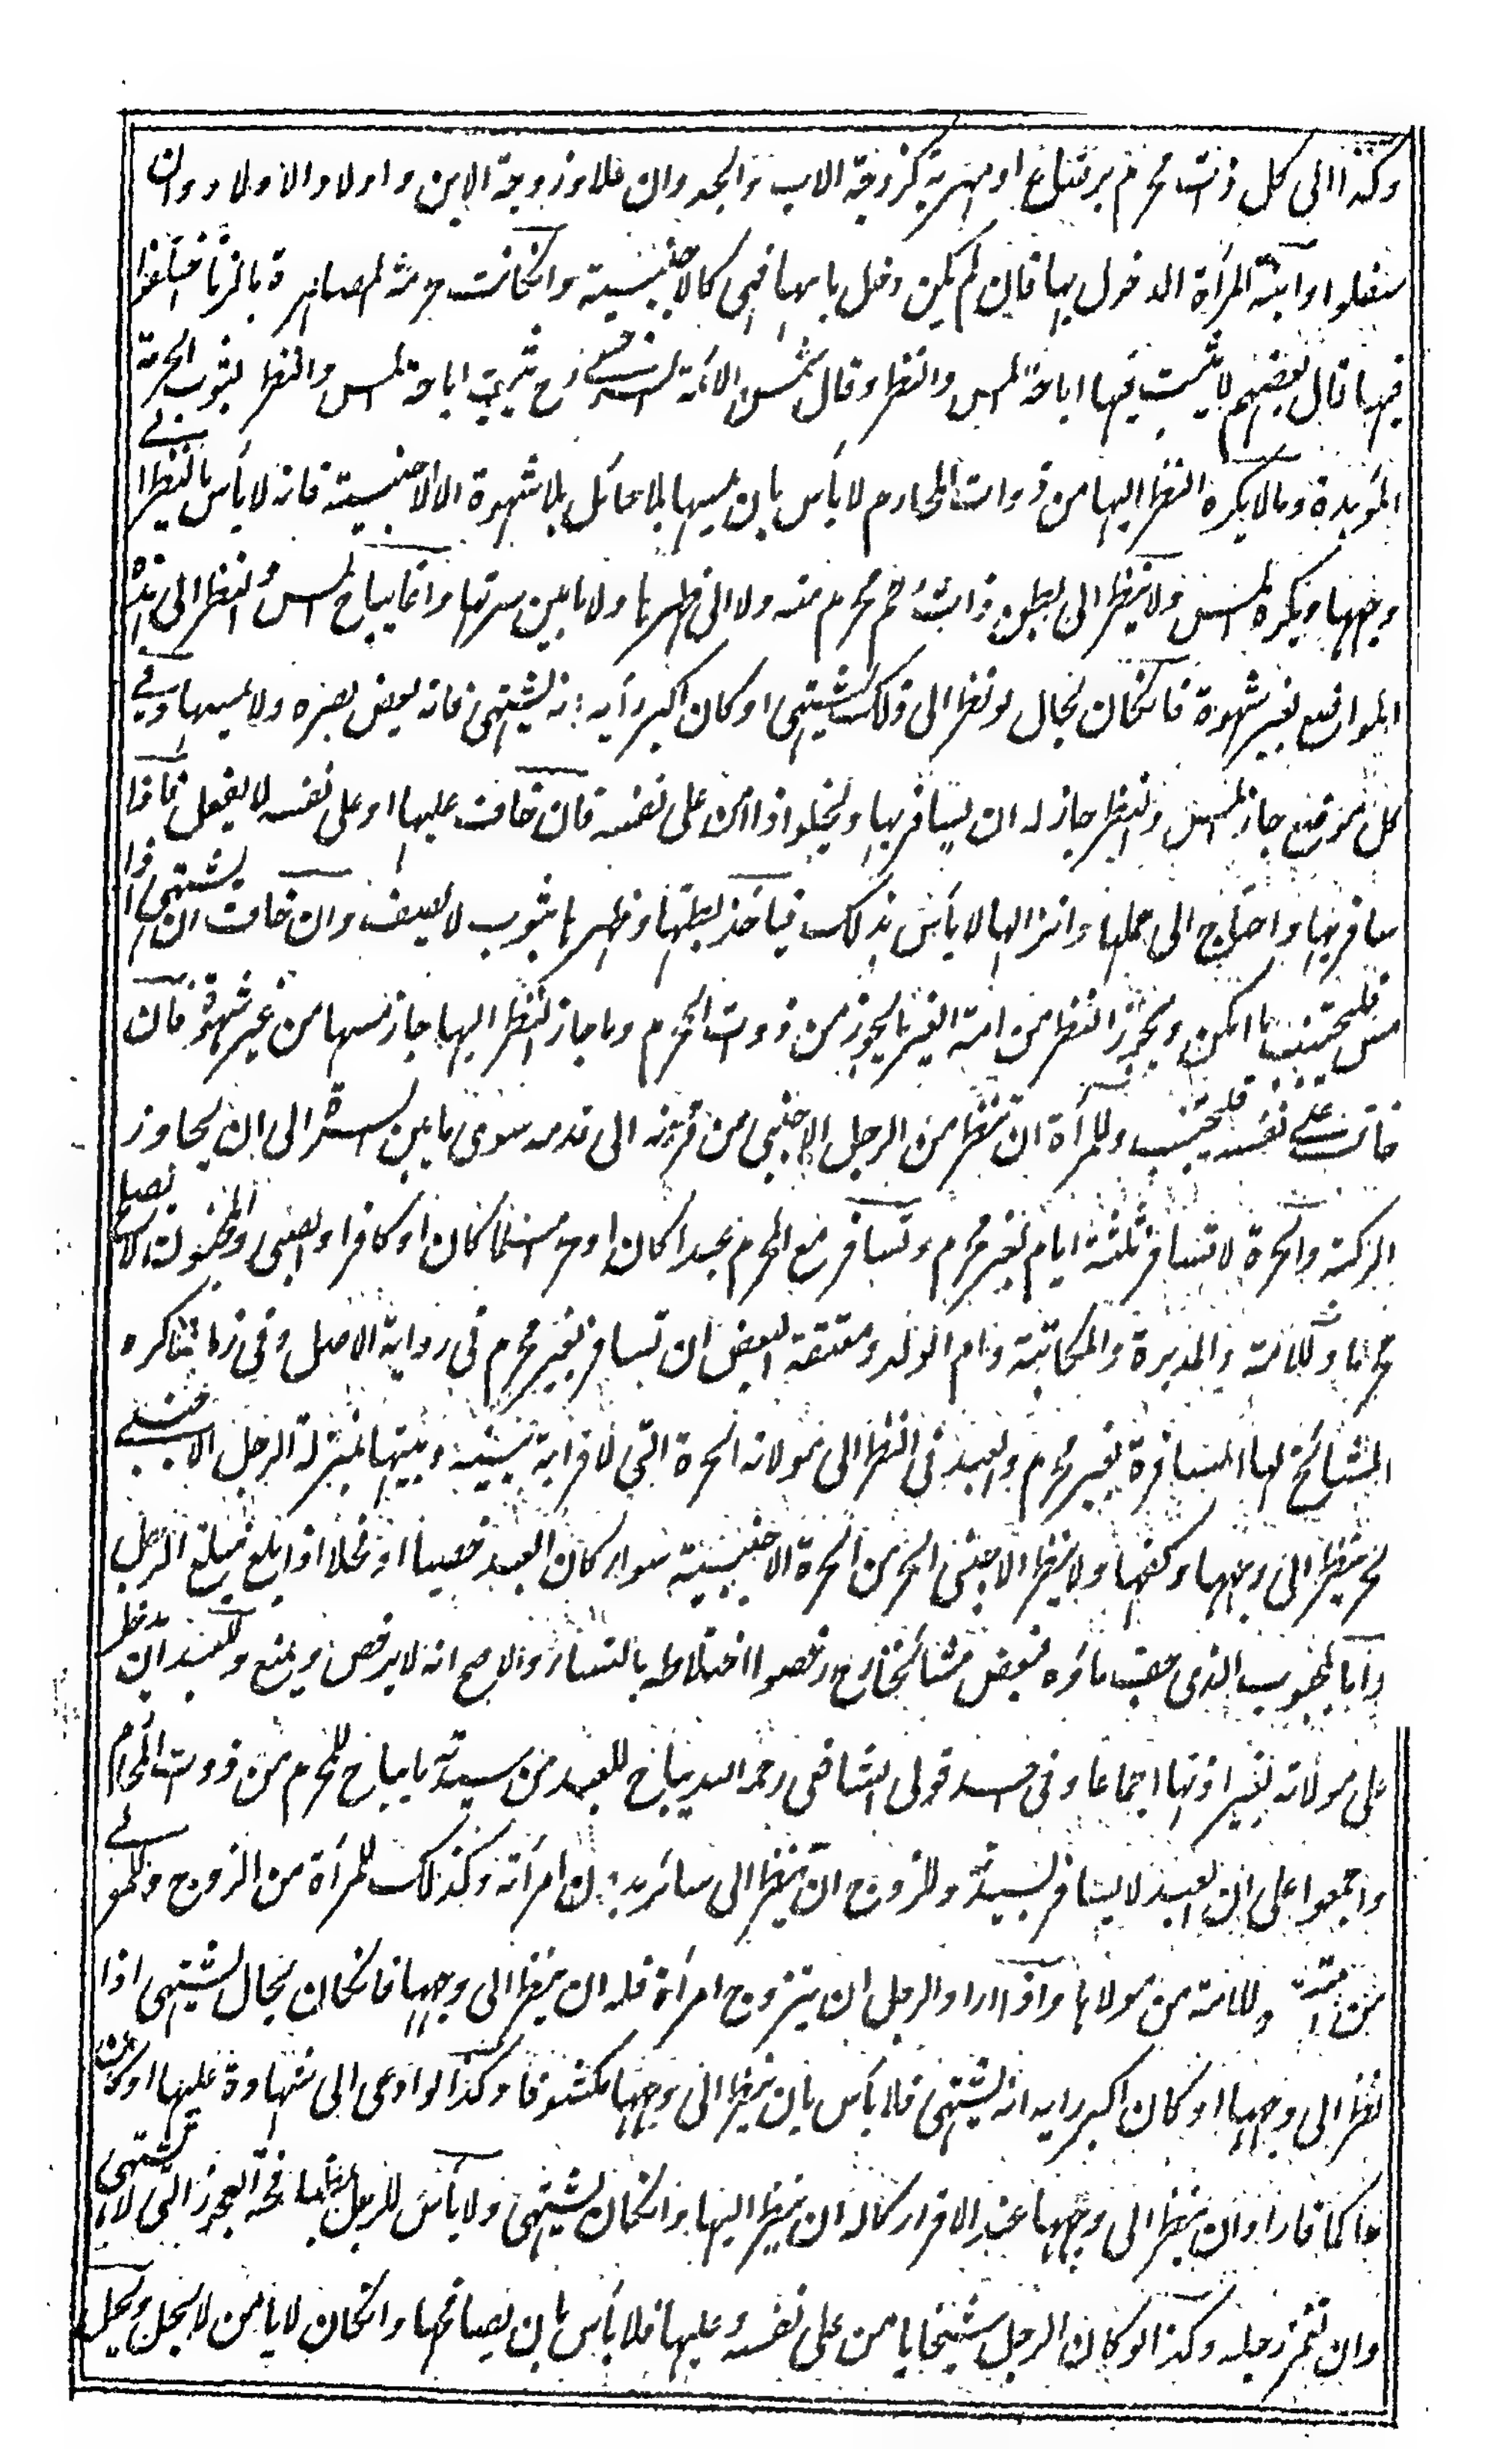 وكذا الى كل ذات محرم برضاع او صهرية كزوجة الاب والجد وان علا وزوجة الابن واولاد الاولاد وان
سفلوا وابنة المرأة المدخول بها فان لم يكن دخل بامها فهي كالاجنبية وانكانت حرمة المصاهرة بالزنا اختلفوا
فيها قال بعضهم لا يثبت فيها اباحة المس والنظر وقال شمس الائمة السرخسي رح تثبت اباحة المس والنظر لثبوت الحرمة
المؤبدة وما لا يكره النظر اليها من ذوات المحارم لا بأس بان يمسها بلا حائل بلا شهوة الا الاجنبية فانه لا بأس بالنظر الى
وجهها ويكره المس ولا ينظر الى بطن ذات رحم محرم منه ولا الى ظهرها ولا ما بين سرتها وانما يباح المس والنظر الى هذه
المواضع بغير شهوة فانكان بحال لو نظر الى ذلك يشتهي او كان اكبر رأيه انه يشتهي فانه يغض بصره ولا يمسها وفي
كل موضع جاز المس والنظر جاز له ان يسافر بها ويخلو اذا امن على نفسه فان خاف عليها او على نفسه لا يفعل فاذا
سافر بها واحتاج الى حملها وانزالها لا بأس بذلك فيأخذ بطنها وظهرها بثوب لا يصف وان خاف ان يشتهي اذا
مس فليجتنب ما امكن ويجوز النظر من امة الغير ما يجوز من ذوات المحرم وما جاز النظر اليها جاز مسها من غير شهوة فان
خاف على نفسه فليجتنب وللمرأة ان تنظر من الرجل الاجنبي من قرنه الى قدمه سوى ما بين السرة الى ان يجاوز
الركبة والحرة لا تسافر ثلثة ايام بغير محرم وتسافر مع المحرم عبدا كان او حر مسلما كان او كافرا والصبي والمجنون لا يصلحا
محرما وللامة والمدبرة والمكاتبة وام الولد ومعتقة البعض ان تسافر بغير محرم في رواية الاصل وفي زماننا كره
المشائخ لها المسافرة بغير محرم والعبد في النظر الى مولاته الحرة التي لا قرابة بينه وبينها بمنزلة الرجل الاجنبي
الحر ينظر الى وجهها وكفيها ولا ينظر الاجنبي الحر من الحرة الاجنبية سواء كان العبد خصيا او فحلا اذا بلغ مبلغ الرجل
واما المجبوب الذي جف ماؤه فبعض مشائخنا رح رخصوا اختلاطه بالنساء والاصح انه لا يرخص ويمنع وللعبد ان يدخل
على مولاته بغير اذنها اجماعا وفي قول الشافعي رحمه الله يباح للعبد من سيدته ما يباح للمحرم من ذوات المحارم
واجمعوا على ان العبد لا يسافر بسيدته وللزوج ان ينظر الى سائر بدن امرأته وكذلك للمرأة من الزوج وللمولى
من امته وللامة من مولاها واذا اراد الرجل ان يتزوج امرأة فله ان ينظر الى وجهها فانكان بحال يشتهي اذا
نظر الى وجهها او كان اكبر رايه انه يشتهي فلا بأس بان ينظر الى وجهها مكشوفا وكذا لو ادعى الى شهادة عليها او كان
حاكما فاراد ان ينظر الى وجهها عند الاقرار كان له ان ينظر اليها وانكان يشتهي ولا بأس للرجل بمصافحة العجوز التي لا تشتهى
وان تغمز رجله وكذا لو كان الرجل شيخا يامن على نفسه وعليها فلا بأس بان يصافحها وانكان لا يامن لا يحل ويحل